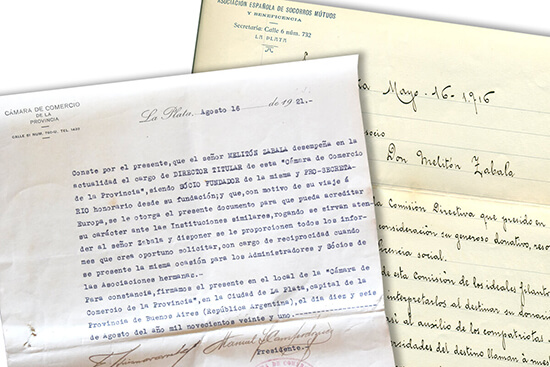 ASOCIACIÓN ESPAÑOLA DE SOCORROS MÚTUOS
Y BENEFICENCIA
Secretaría: Calle 6 núm. 732
LA PLATA
Mayo 16-1916
socio
Don Melitón Zabala
Comisión Directiva que presido en
consideración su generoso donativo, res
social.
de esta Comisión de los ideales filantró
interpretarlos al destinar su donativo
al auxilio de los compatriotas
del destino llaman á nues
CÁMARA DE COMERCIO
DE LA
PROVINCIA
La Plata, Agosto 16 de 1921.-
Conste por el presente, que el señor MELITÓN ZABALA desempeña en la
actualidad el cargo de DIRECTOR TITULAR de esta "Cámara de Comercio
de la Provincia", siendo SÓCIO FUNDADOR de la misma y PRO-SECRETA-
RIO honorario desde su fundación; y que, con motivo de su viaje á
Europa, se le otorga el presente documento para que pueda acreditar
su carácter ante las Instituciones similares, rogando se sirvan aten-
der al señor Zabala y disponer se le proporcionen todos los infor-
mes que crea oportuno solicitar, con cargo de reciprocidad cuando
se presente la misma ocasión para los Administradores y Sócios de
las Asociaciones hermanas.-
Para constancia, firmamos el presente en el local de la "Cámara de
Comercio de la Provincia", en la Ciudad de La Plata, capital de la
Provincia de Buenos Aires (República Argentina), el día diez y seis
de Agosto del año mil novecientos veinte y uno
Manuel
Presidente.